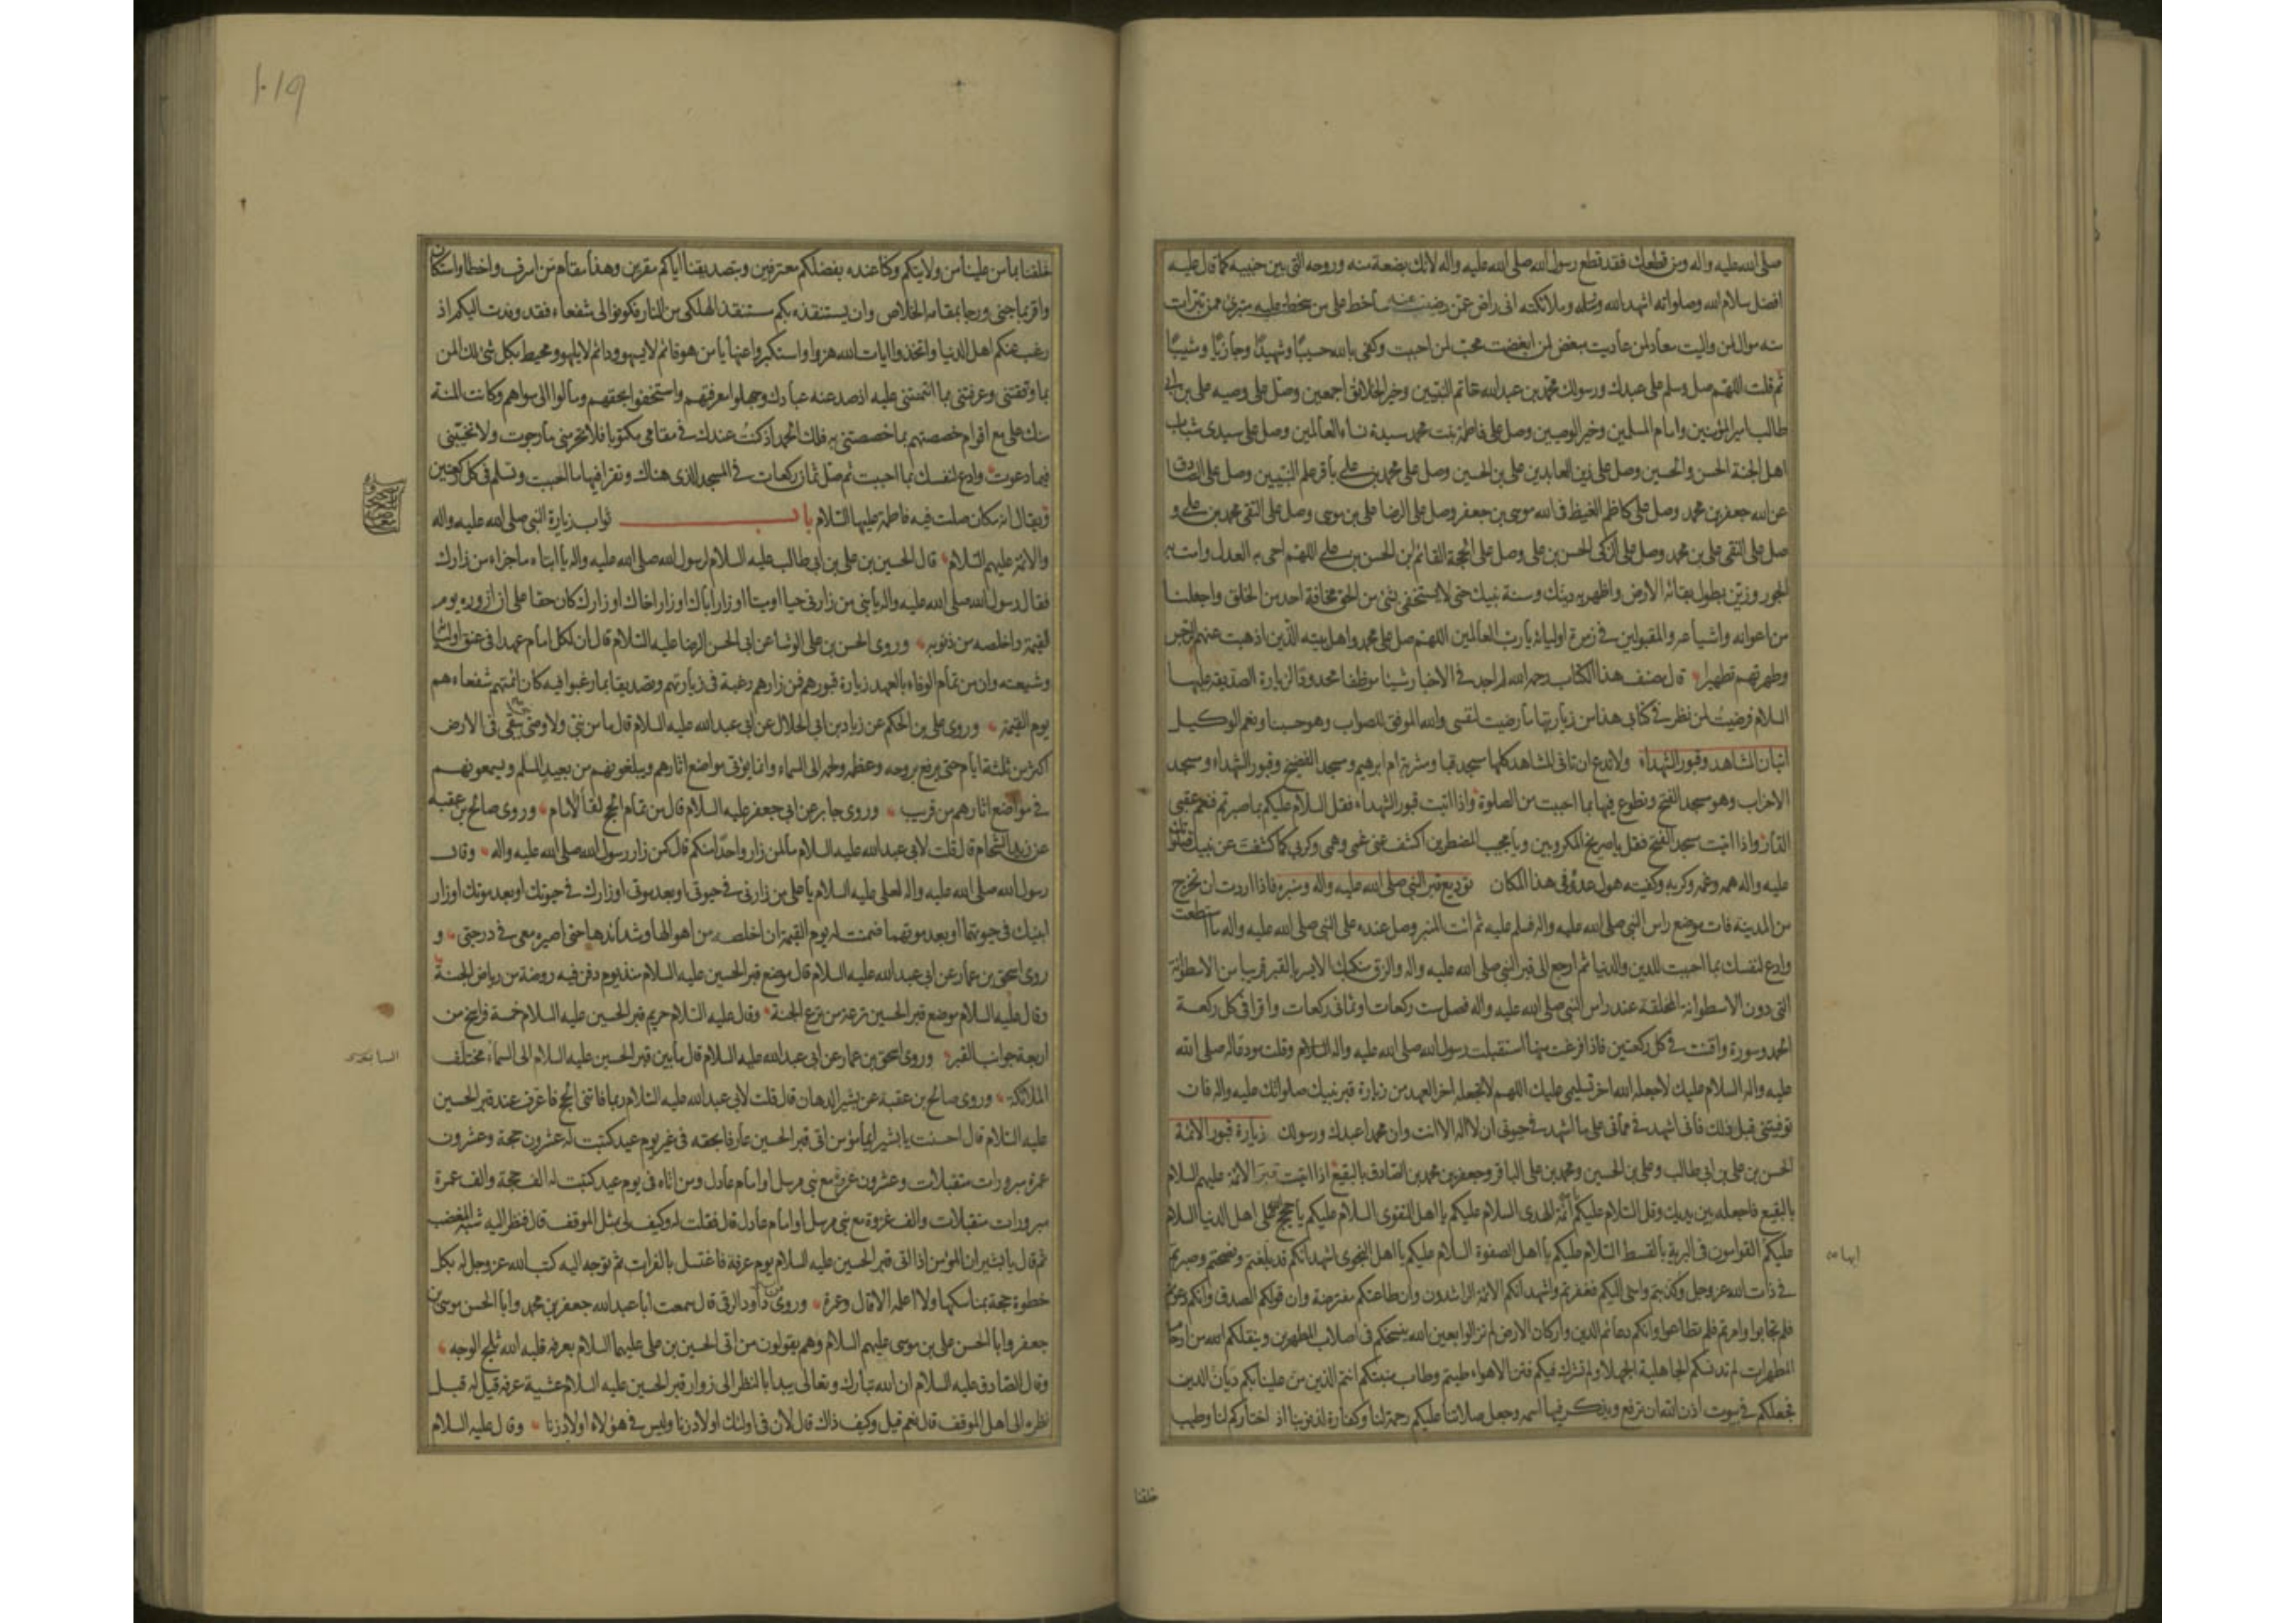 صلى الله عليه واله ومن قطعك فقد قطع رسول الله صلى الله عليه واله لانك بضعة منه وروحه التى بين جنبيه كما قال عليه
افضل سلام الله وصلواته اشهد الله ورسله وملائكته انى راض عمن رضيت عنه ساخط على من سخطت عليه متبرئ ممن تبرات
منه موال لمن واليت معاد لمن عاديت مبغض لمن ابغضت محب لمن احببت وكفى بالله حسيبًا وشهيدًا وجازيًا ومثيبًا
ثم قلت اللهم صل وسلم على عبدك ورسولك محمد بن عبد الله خاتم النبيين وخير الخلائق اجمعين وصل على وصيه على بن ابى
طالب امير المؤمنين وامام المسلمين وخير الوصيين وصل على فاطمة بنت محمد سيدة نساء العالمين وصل على سيدى شباب
اهل الجنة الحسن والحسين وصل على زين العابدين على بن الحسين وصل على محمد بن على باقر علم النبيين وصل على الصادق
عن الله جعفر بن محمد وصل على كاظم الغيظ فى الله موسى بن جعفر وصل على الرضا على بن موسى وصل على التقى محمد بن على و
صل على النقى على بن محمد وصل على الزكى الحسن بن على وصل على الحجة القائم ابن الحسن بن على اللهم احى به العدل وامت به
الجور وزين بطول بقائه الارض واظهر به دينك وسنة نبيك حتى لا يستخفى بشئ من الحق مخافة احد من الخلق واجعلنا
من اعوانه واشياعه والمقبولين فى زمرة اوليائه يا رب العالمين اللهم صل على محمد واهل بيته الذين اذهبت عنهم الرجس
وطهرتهم تطهيرا قال مصنف هذا الكتاب رحمه الله لم اجد فى الاخبار شيئا موظفا محدودا لزيارة الصديقة عليها
السلام فرضيت لمن نظر فى كتابى هذا من زيارتها ما رضيت لنفسى والله الموفق للصواب وهو حسبنا ونعم الوكيل
اتيان المشاهد وقبور الشهداء ولا تدع ان تاتى المشاهد كلها مسجد قبا ومشربة ام ابرهيم ومسجد الفضيخ وقبور الشهداء ومسجد
الاحزاب وهو مسجد الفتح وتطوع فيها بما احببت من الصلوة واذا اتيت قبور الشهداء فقل السلام عليكم بما صبرتم فنعم عقبى
الدار واذا اتيت مسجد الفتح فقل يا صريخ المكروبين ويا مجيب المضطرين اكشف عنى غمى وهمى وكربى كما كشفت عن نبيك صلواتك
عليه واله همه وغمه وكربه وكفيته هول عدوه فى هذا المكان توديع قبر النبى صلى الله عليه واله ومنبره فاذا اردت ان تخرج
من المدينة فات موضع راس النبى صلى الله عليه واله فسلم عليه ثم ائت المنبر وصل عنده على النبى صلى الله عليه واله ما استطعت
وادع لنفسك بما احببت للدين والدنيا ثم ارجع الى قبر النبى صلى الله عليه واله والزق منكبك الايسر بالقبر قريبا من الاسطوانة
التى دون الاسطوانة المخلقة عند راس النبى صلى الله عليه واله فصل ست ركعات او ثمانى ركعات واقرا فى كل ركعة
الحمد وسورة واقنت فى كل ركعتين فاذا فرغت منها استقبلت رسول الله صلى الله عليه واله السلام وقلت مودعا له صلى الله
عليه واله السلام عليك لا جعله الله اخر تسليمى عليك اللهم لا تجعله اخر العهد من زيارة قبر نبيك صلواتك عليه واله فان
توفيتنى قبل ذلك فانى اشهد فى مماتى على ما اشهد فى حيوتى ان لا اله الا انت وان محمدا عبدك ورسولك زيارة قبور الائمة
الحسن بن على بن ابى طالب وعلى بن الحسين ومحمد بن على الباقر وجعفر بن محمد الصادق بالبقيع اذا اتيت قبر الائمة عليهم السلام
بالبقيع فاجعله بين يديك وقل السلام عليكم ائمة الهدى السلام عليكم يا اهل التقوى السلام عليكم يا حجج على اهل الدنيا السلام
عليكم القوامون فى البرية بالقسط السلام عليكم يا اهل الصفوة السلام عليكم يا اهل النجوى اشهد انكم قد بلغتم ونصحتم وصبرتم
فى ذات الله عز وجل وكذبتم واسئ اليكم فغفرتم واشهد انكم الائمة الراشدون وان طاعتكم مفترضة وان قولكم الصدق وانكم دعوتم
فلم تجابوا وامرتم فلم تطاعوا وانكم دعائم الدين واركان الارض لم تزالوا بعين الله ينسخكم فى اصلاب المطهرين وينقلكم الله من ارحام
المطهرات لم تدنسكم الجاهلية الجهلاء ولم تشرك فيكم فتن الاهواء طبتم وطاب منبتكم انتم الذين من علينا بكم ديان الدين
فجعلكم فى بيوت اذن الله ان ترفع ويذكر فيها اسمه وجعل صلاتنا عليكم رحمة لنا وكفارة لذنوبنا اذ اختاركم لنا وطيب
خلقنا
١٠١٩
خلقنا بما من علينا من ولايتكم وكنا عنده بفضلكم معترفين وبتصديقنا اياكم مقرين وهذا مقام من اسرف واخطا واستكان
واقر بما جنى ورجا بمقامه الخلاص وان يستنقذه بكم مستنقذ الهلكى من النار فكونوا لى شفعاء فقد وفدت اليكم اذ
رغب عنكم اهل الدنيا واتخذوا ايات الله هزوا واستكبروا عنها يا من هو قائم لا يسهو ودائم لا يلهو ومحيط بكل شئ لك المن
بما وفقتنى وعرفتنى بما ائتمنتنى عليه اذ صد عنه عبادك وجهلوا معرفتهم واستخفوا بحقهم ومالوا الى سواهم وكانت المنة
منك على مع اقوام خصصتهم بما خصصتنى به فلك الحمد اذ كنت عندك فى مقامى مكتوبا فلا تحرمنى ما رجوت ولا تخيبنى
فيما دعوت وادع لنفسك بما احببت ثم صل ثمان ركعات فى المسجد الذى هناك وتقرا فيها ما احببت وتسلم فى كل ركعتين
ويقال انه مكان صلت فيه فاطمة عليها السلام باب ثواب زيارة النبى صلى الله عليه واله
والائمة عليهم السلام قال الحسين بن على بن ابى طالب عليه السلام لرسول الله صلى الله عليه واله يا ابتاه ما جزاء من زارك
فقال رسول الله صلى الله عليه واله يا بنى من زارنى حيا او ميتا او زار اباك او زار اخاك او زارك كان حقا على ان ازوره يوم
القيمة واخلصه من ذنوبه وروى الحسن بن على الوشا عن ابى الحسن الرضا عليه السلام قال ان لكل امام عهدا فى عنق اوليائه
وشيعته وان من تمام الوفاء بالعهد زيارة قبورهم فمن زارهم رغبة فى زيارتهم وتصديقا بما رغبوا فيه كان ائمتهم شفعاءهم
يوم القيمة وروى على بن الحكم عن زياد بن ابى الحلال عن ابى عبد الله عليه السلام قال ما من نبى ولا وصى يبقى فى الارض
اكثر من ثلثة ايام حتى يرفع بروحه وعظمه ولحمه الى السماء وانما يؤتى مواضع اثارهم ويبلغونهم من بعيد السلم ويسمعونهم
فى مواضع اثارهم من قريب وروى جابر عن ابى جعفر عليه السلام قال من تمام الحج لقاء الامام وروى صالح بن عقبة
عن زيد الشحام قال قلت لابى عبد الله عليه السلام ما لمن زار واحدا منكم قال كمن زار رسول الله صلى الله عليه واله وقال
رسول الله صلى الله عليه واله لعلى عليه السلام يا على من زارنى فى حيوتى او بعد موتى او زارك فى حيوتك او بعد موتك او زار
ابنيك فى حيوتهما او بعد موتهما ضمنت له يوم القيمة ان اخلصه من اهوالها وشدائدها حتى اصيره معى فى درجتى و
روى اسحق بن عمار عن ابى عبد الله عليه السلام قال موضع قبر الحسين عليه السلام منذ يوم دفن فيه روضة من رياض الجنة
وقال عليه السلام موضع قبر الحسين ترعة من ترع الجنة وقال عليه السلام حريم قبر الحسين عليه السلام خمسة فراسخ من
اربعة جوانب القبر وروى اسحق بن عمار عن ابى عبد الله عليه السلام قال ما بين قبر الحسين عليه السلام الى السماء مختلف
الملائكة وروى صالح بن عقبة عن بشير الدهان قال قلت لابى عبد الله عليه السلام ربما فاتنى الحج فاعرف عند قبر الحسين
عليه السلام قال احسنت يا بشير ايما مؤمن اتى قبر الحسين عارفا بحقه فى غير يوم عيد كتبت له عشرون حجة وعشرون
عمرة مبرورات متقبلات وعشرون غزوة مع نبى مرسل او امام عادل ومن اتاه فى يوم عيد كتبت له الف حجة والف عمرة
مبرورات متقبلات والف غزوة مع نبى مرسل او امام عادل قال فقلت له وكيف لى بمثل الموقف قال فنظر اليه شبه المغضب
ثم قال يا بشير ان المؤمن اذا اتى قبر الحسين عليه السلام يوم عرفة فاغتسل بالفرات ثم توجه اليه كتب الله عز وجل له بكل
خطوة حجة بمناسكها ولا اعلمه الا قال وعمرة وروى داود الرقى قال سمعت ابا عبد الله جعفر بن محمد وابا الحسن موسى بن
جعفر وابا الحسن على بن موسى عليهم السلام وهم يقولون من اتى الحسين بن على عليهما السلام بعرفة قلبه الله ثلج الوجه
وقال الصادق عليه السلام ان الله تبارك وتعالى يبدا بالنظر الى زوار قبر الحسين عليه السلام عشية عرفة قيل له قبل
نظره الى اهل الموقف قال نعم قيل وكيف ذاك قال لان فى اولئك اولاد زنا وليس فى هؤلاء اولاد زنا وقال عليه السلام